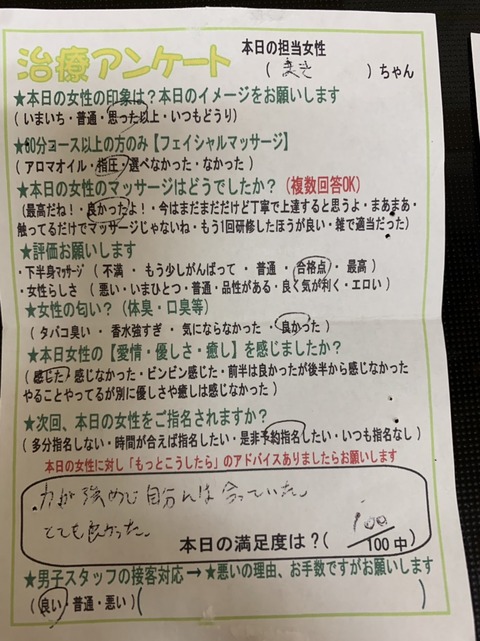 治療アンケート
本日の担当女性
( まき )ちゃん
★本日の女性の印象は？本日のイメージをお願いします
(いまいち・普通・思った以上・いつもどうり)
★60分コース以上の方のみ【フェイシャルマッサージ】
(アロマオイル・指圧・選べなかった・なかった)
★本日の女性のマッサージはどうでしたか？(複数回答OK)
(最高だね！・良かったよ！・今はまだまだだけど丁寧で上達すると思うよ・まあまあ・
触ってるだけでマッサージじゃないね・もう1回研修したほうが良い・雑で適当だった)
★評価お願いします
・下半身マッサージ (不満 ・ もう少しがんばって ・ 普通 ・ 合格点 ・ 最高 )
・女性らしさ (悪い・いまひとつ・普通・品性がある・良く気が利く・エロい)
★女性の匂い？(体臭・口臭等)
(タバコ臭い ・ 香水強すぎ ・ 気にならなかった ・ 良かった )
★本日女性の【愛情・優しさ・癒し】を感じましたか？
(感じた・感じなかった・ビンビン感じた・前半は良かったが後半から感じなかった
やることやってるが別に優しさや癒しは感じなかった)
★次回、本日の女性をご指名されますか？
(多分指名しない・時間が合えば指名したい・是非予約指名したい・いつも指名なし)
本日の女性に対し「もっとこうしたら」のアドバイスありましたらお願いします
力が強めで自分には合っていた。
とても良かった。
本日の満足度は？( 100/100中)
★男子スタッフの接客対応 → ★悪いの理由、お手数ですがお願いします
(良い・普通・悪い) ( )